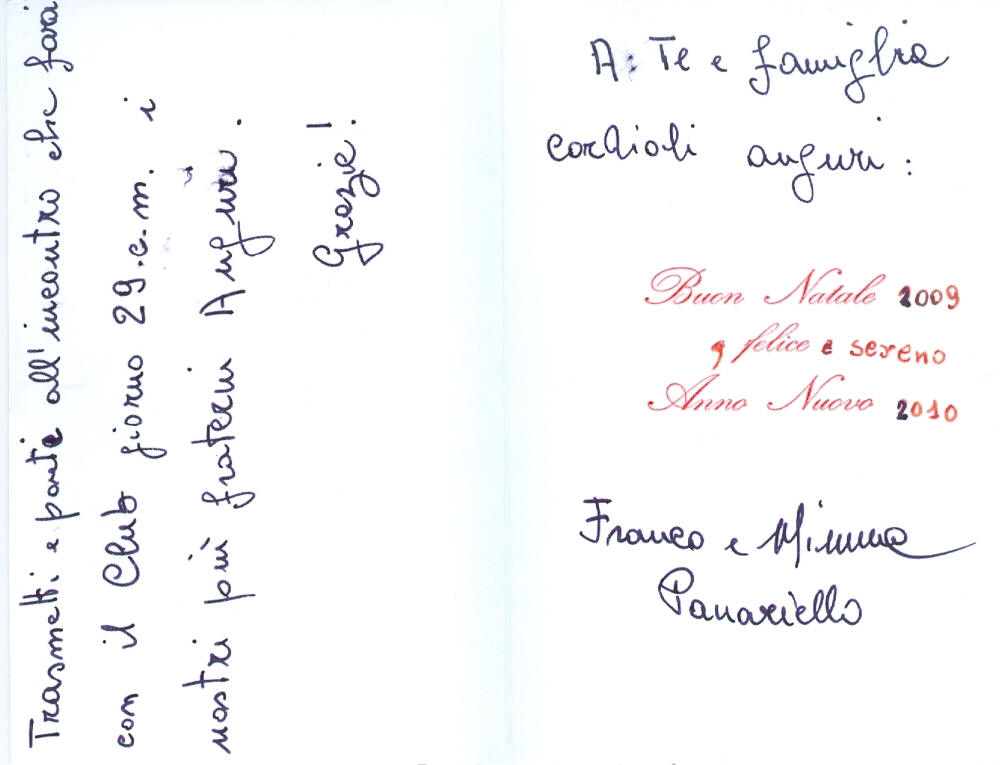 Trasmetti e porte all'incontro che farai
con il Club giorno 29.c.m. i
nostri più fraterni Auguri.
Grazie!
A: Te e famiglia
cordiali auguri:
Buon Natale 2009
e felice e sereno
Anno Nuovo 2010
Franco e Mimma
Panariello